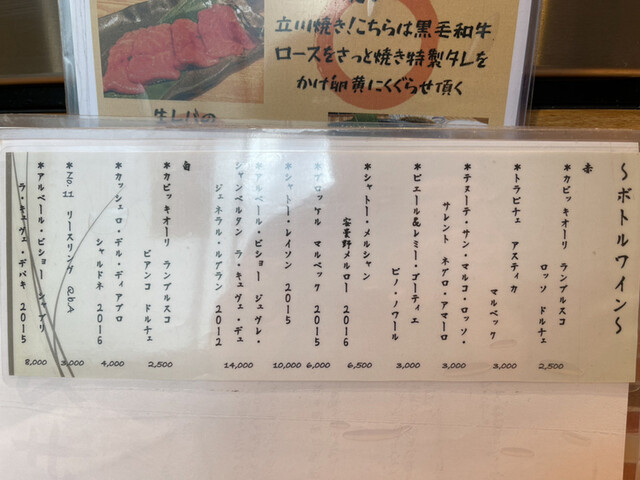 立川焼き!こちらは黒毛和牛
ロースをさっと焼き特製タレを
かけ卵黄にくぐらせ頂く
～ボトルワイン～
赤
*カビッキオーリ ランブルスコ
ロッソ ドルチェ
2,500
*トラピチェ アスティカ
マルベック
3,000
*テヌーテ・サン・マルコ・ロッソ・
サレント ネグロ・アマーロ
3,000
*ピエール&レミー・ゴーティエ
ピノ・ノワール
3,000
*シャトー・メルシャン
安曇野メルロー 2016
6,500
*ブロッケル マルベック 2015
6,000
*シャトー・レイソン 2015
10,000
*アルベール・ビショー ジュヴレ・
シャンベルタン ラ・キュヴェ・デュ
ジェネラル・ルアラン 2012
14,000
白
*カビッキオーリ ランブルスコ
ビアンコ ドルチェ
2,500
*カッシェロ・デル・ディアブロ
シャルドネ 2016
4,000
*No 11 リースリング QbA
3,000
*アルベール・ビショー シャブリ
ラ・キュヴェ・デパキ 2015
8,000